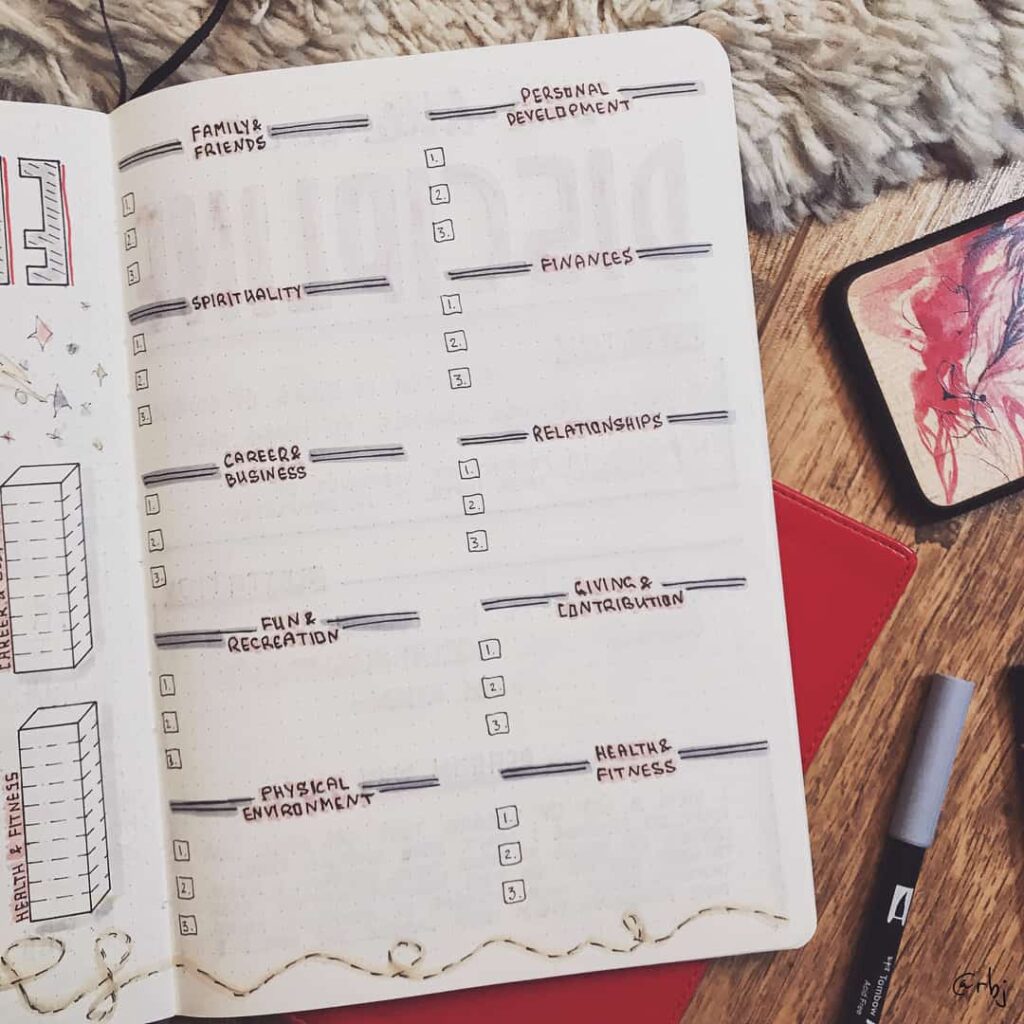 FAMILY &
FRIENDS
1.
2.
3.
SPIRITUALITY
1.
2.
3.
CAREER &
BUSINESS
1.
2.
3.
FUN &
RECREATION
1.
2.
3.
PHYSICAL
ENVIRONMENT
1.
2.
3.
PERSONAL
DEVELOPMENT
1.
2.
3.
FINANCES
1.
2.
3.
RELATIONSHIPS
1.
2.
3.
GIVING &
CONTRIBUTION
1.
2.
3.
HEALTH &
FITNESS
1.
2.
3.
CAREER &
HEALTH & FITNESS
Tombow
Acid Free
@rbj